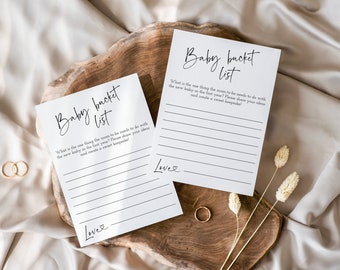 Baby bucket
list
"What is the one thing the mom-to-be needs to do with
the new baby in the first year? Please share your ideas
and create a sweet keepsake"
Love
Baby bucket
list
"What is the one thing the mom-to-be needs to do with
the new baby in the first year? Please share your ideas
and create a sweet keepsake"
Love